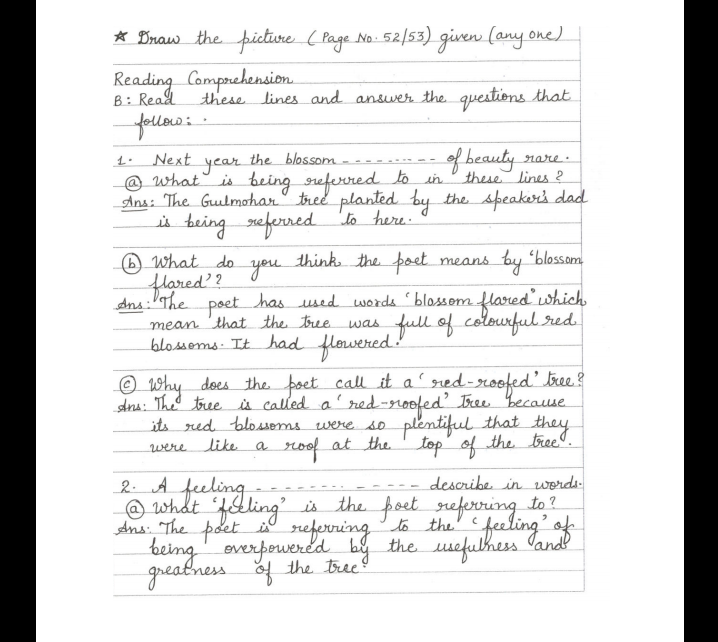 ★ Draw the picture (Page No. 52/53) given (any one)
Reading Comprehension
B: Read these lines and answer the questions that
follow: .
1. Next year the blossom --------- of beauty rare.
(a) What is being referred to in these lines?
Ans: The Gulmohar tree planted by the speaker's dad
is being referred to here.
(b) What do you think the poet means by 'blossom
flared'?
Ans: The poet has used words 'blossom flared' which
mean that the tree was full of colourful red
blossoms. It had flowered.
(c) Why does the poet call it a 'red-roofed' tree?
Ans: The tree is called a 'red-roofed' tree because
its red blossoms were so plentiful that they
were like a roof at the top of the tree.
2. A feeling -------- ----- describe in words.
(a) What 'feeling' is the poet referring to?
Ans: The poet is referring to the 'feeling' of
being overpowered by the usefulness and
greatness of the tree.